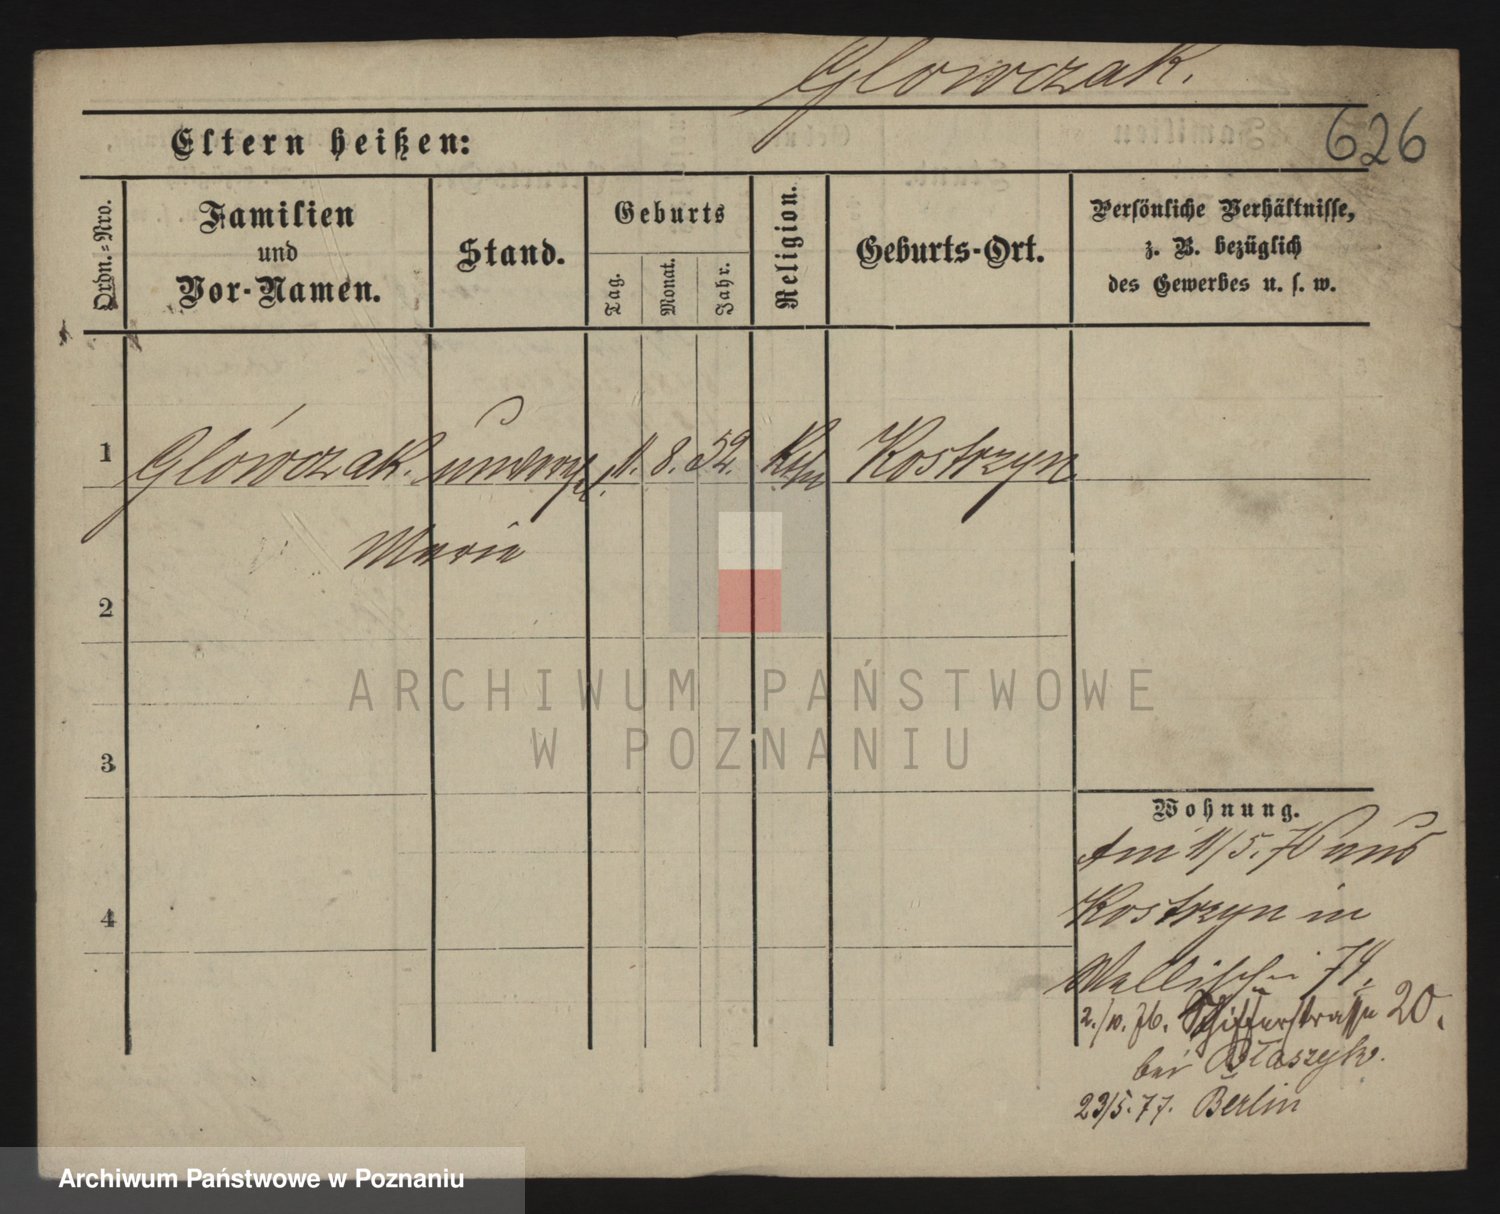 Glowczak.
626
Eltern heißen:
Ordn.=Nro.
Familien
und
Vor-Namen.
Stand.
Geburts
Tag.
Monat.
Jahr.
Religion.
Geburts-Ort.
Persönliche Verhältnisse,
z. B. bezüglich
des Gewerbes u. s. w.
1
Glówczak. 8. 52. Kostrzyn
Marie
2
3
4
Wohnung.
Am 11/5. 76 aus
Kostrzyn in
Wallischei 74.
2./10. 76. Schifferstrasse 20.
bei Błaszyk.
23/5. 77. Berlin
ARCHIWUM PAŃSTWOWE
W POZNANIU
Archiwum Państwowe w Poznaniu